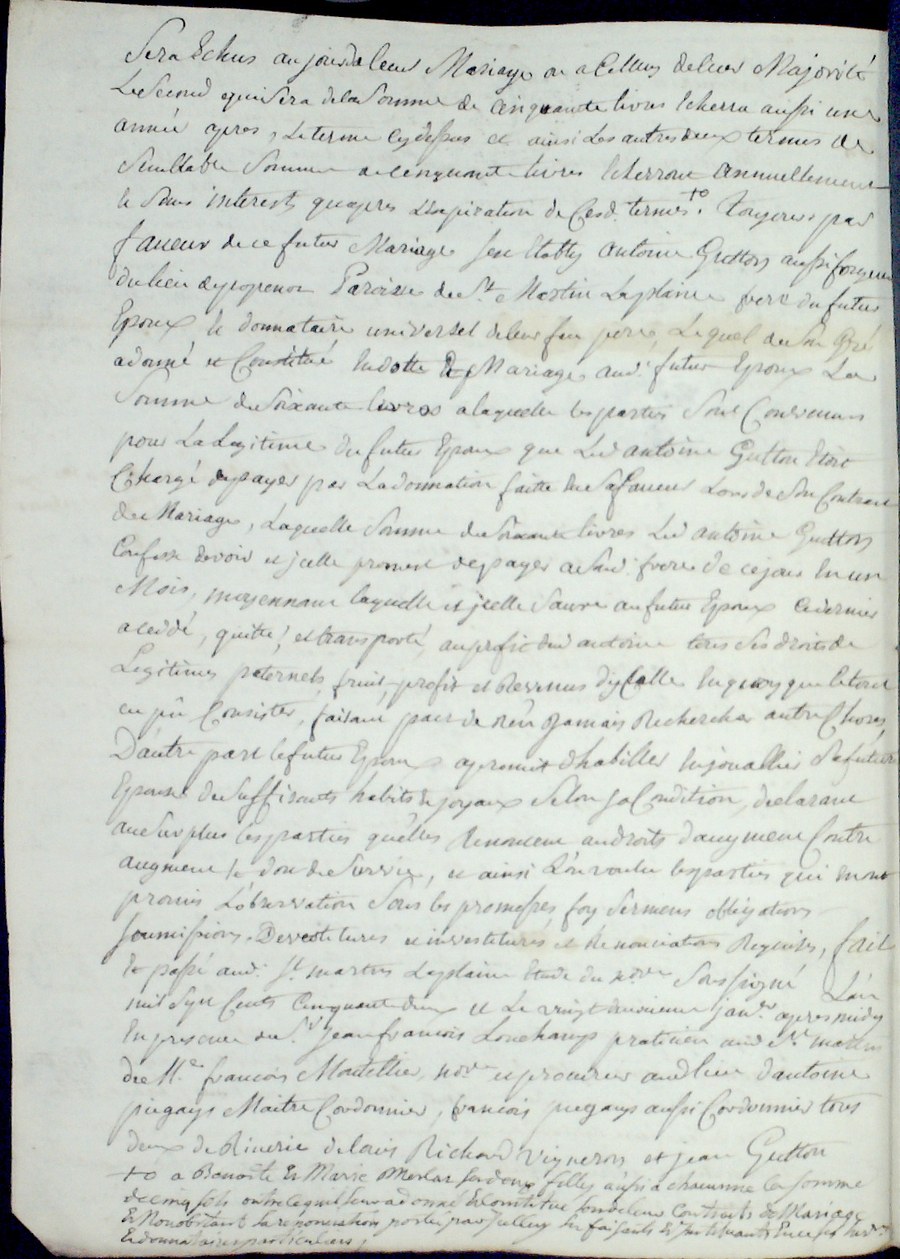 Sera Echus au jour de leur Mariage ou a Celluy de leur Majorité
Le Second qui Sera de la Somme de Cinquante livres Echerra aussi une
année apres, Le terme cy dessus et ainsi Les autres deux termes de
Semblable Somme de Cinquante livres Echerront annuellement
le Sans interest qu'apres L'expiration de Cesd. termes +o
faveur de ce futur Mariage Sest Etably Antoine Gutton aussi
du lieu de Paroisse de St. Martin Laplaine frere du futur
Epoux et donnataire universel de leur feu pere, Lequel de Son Gré
a donné et Constitué En dotte De Mariage aud. futur Epoux La
Somme de Soixante livres a laquelle les parties Sont Convenues
pour La Legitime du futur Epoux que Led. antoine Gutton Etoit
Chargé de payer par La donnation faitte En Sa faveur Lors de Son Contract
de Mariage, Laquelle Somme de Soixante livres Led. antoine Gutton
Confesse devoir et jcelle promet de payer a Sond. frere de ce jour En un
Mois, moyennant laquelle et jcelle Sauve au futur Epoux Ce dernier
a ceddé, quitté, et transporté, au profit dud. antoine tous Ses droits de
Legitimes paternels, fruit, profit et Revenus d'jcelle En quoy que le tout
en pût Consister, faisant pact de n'en Jamais Rechercher autre Chose,
D'autre part le futur Epoux a promit d'habiller Enjouallier Sa future
Epouse de Suffisants habits & joyaux Selon Sa Condition, declarant
au Surplus les parties qu'elles Renoncent aux droits d'augment Contre
augment & don de Survie, et ainsi L'ont voulu les parties qui m'ont
promis L'observation Sous les promesses foy Serment obligations
Soumissions, Devestitures et investitures et Renonciations Requises, fait
& passé aud. St. martin Laplaine Etude du nore. Soussigné L'an
mil Sept Cents Cinquante deux et Le vingt janer. apres midy
En presence du Sr. Jean francois Lonchamps praticien aud. St. martin
de Me. francois Montellier, nore. et procureur audit lieu d'antoine
pingays Maitre Cordonnier, francois pugays aussi Cordonnier tous
deux de Riverie de louis Richard Vigneron et jean Gutton
+o a Benoite & Marie Merlat Ses deux filles aussi a chacunne la Somme
de Cinq Sols outre Ce que leur a donné & Constitué Sond. leurs Contracts de Mariage
& Nonobstant la renonciation portée par jcelluy les faisants
& donnataires particulieres /